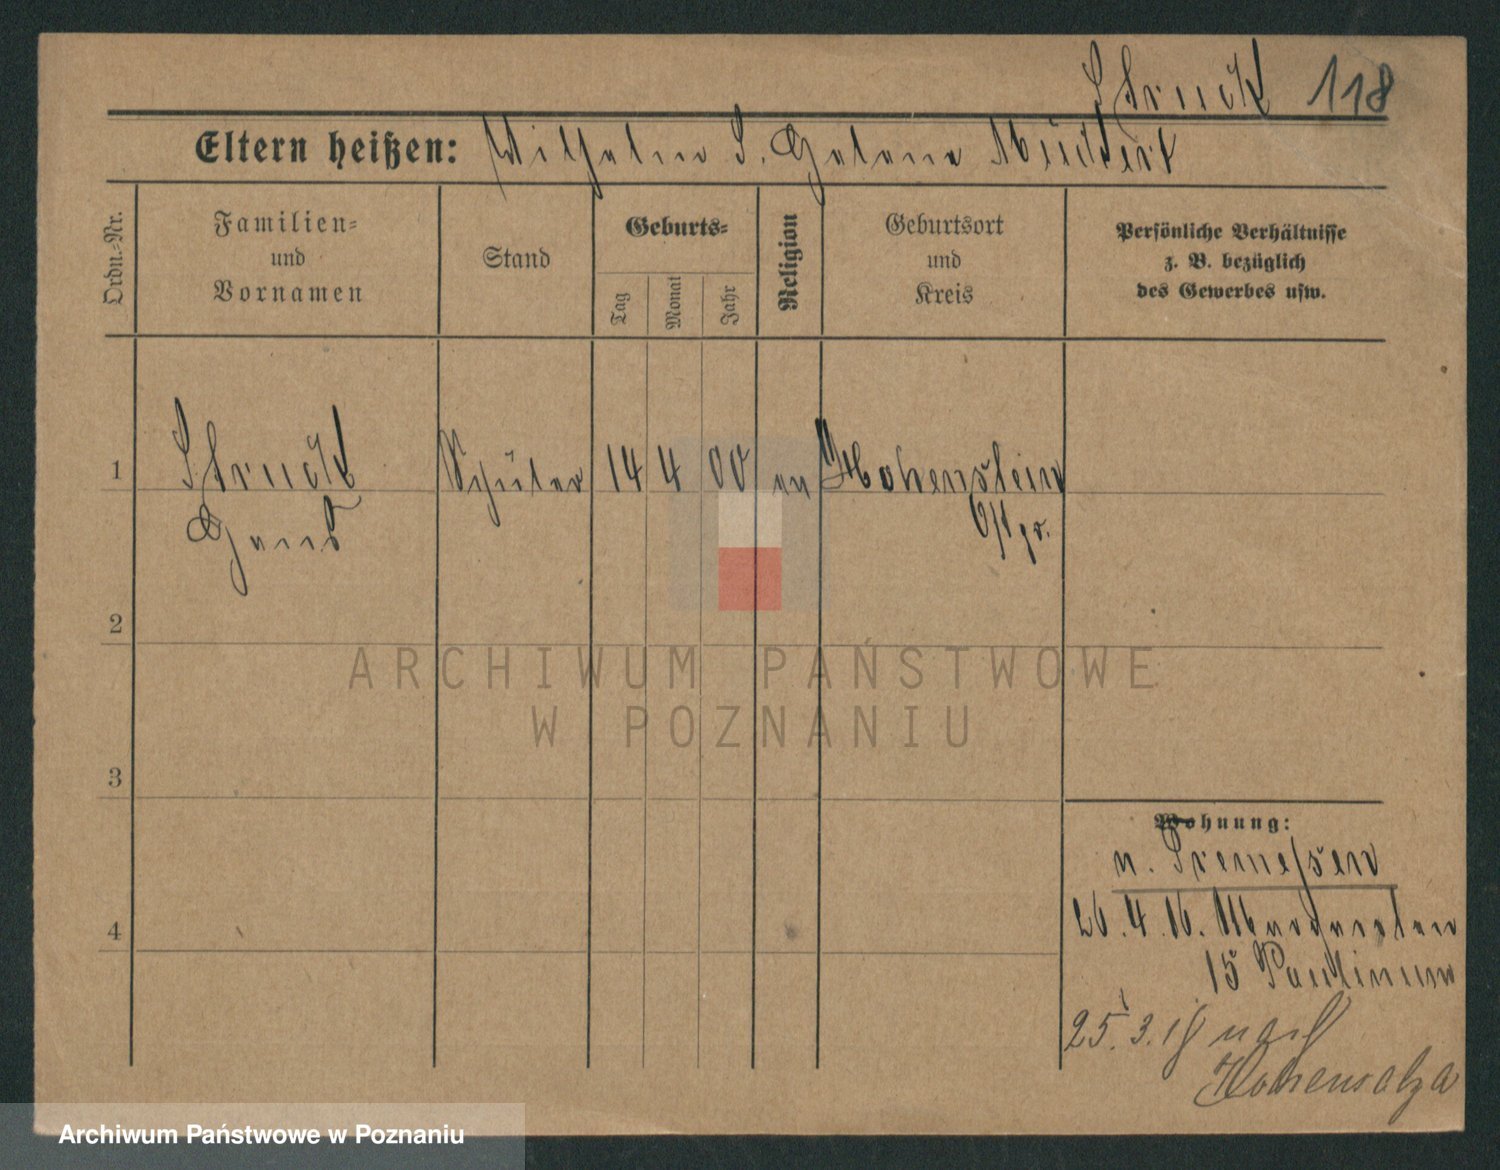 Struck 118
Eltern heißen: Wilhelm S. Helene
Ordn.-Nr.
Familien-
und
Vornamen
Stand
Geburts-
Tag
Monat
Jahr
Religion
Geburtsort
und
Kreis
Persönliche Verhältnisse
z. B. bezüglich
des Gewerbes usw.
1 Struck Schüler 14 4 00 ev Hohenstein
Hans Ostpr.
2
3
4
Wohnung:
v. Tremessen
26.4.16. Margareten
15 Paulinum
25.3.18 nach
Hohensalza
ARCHIWUM PAŃSTWOWE
W POZNANIU
Archiwum Państwowe w Poznaniu